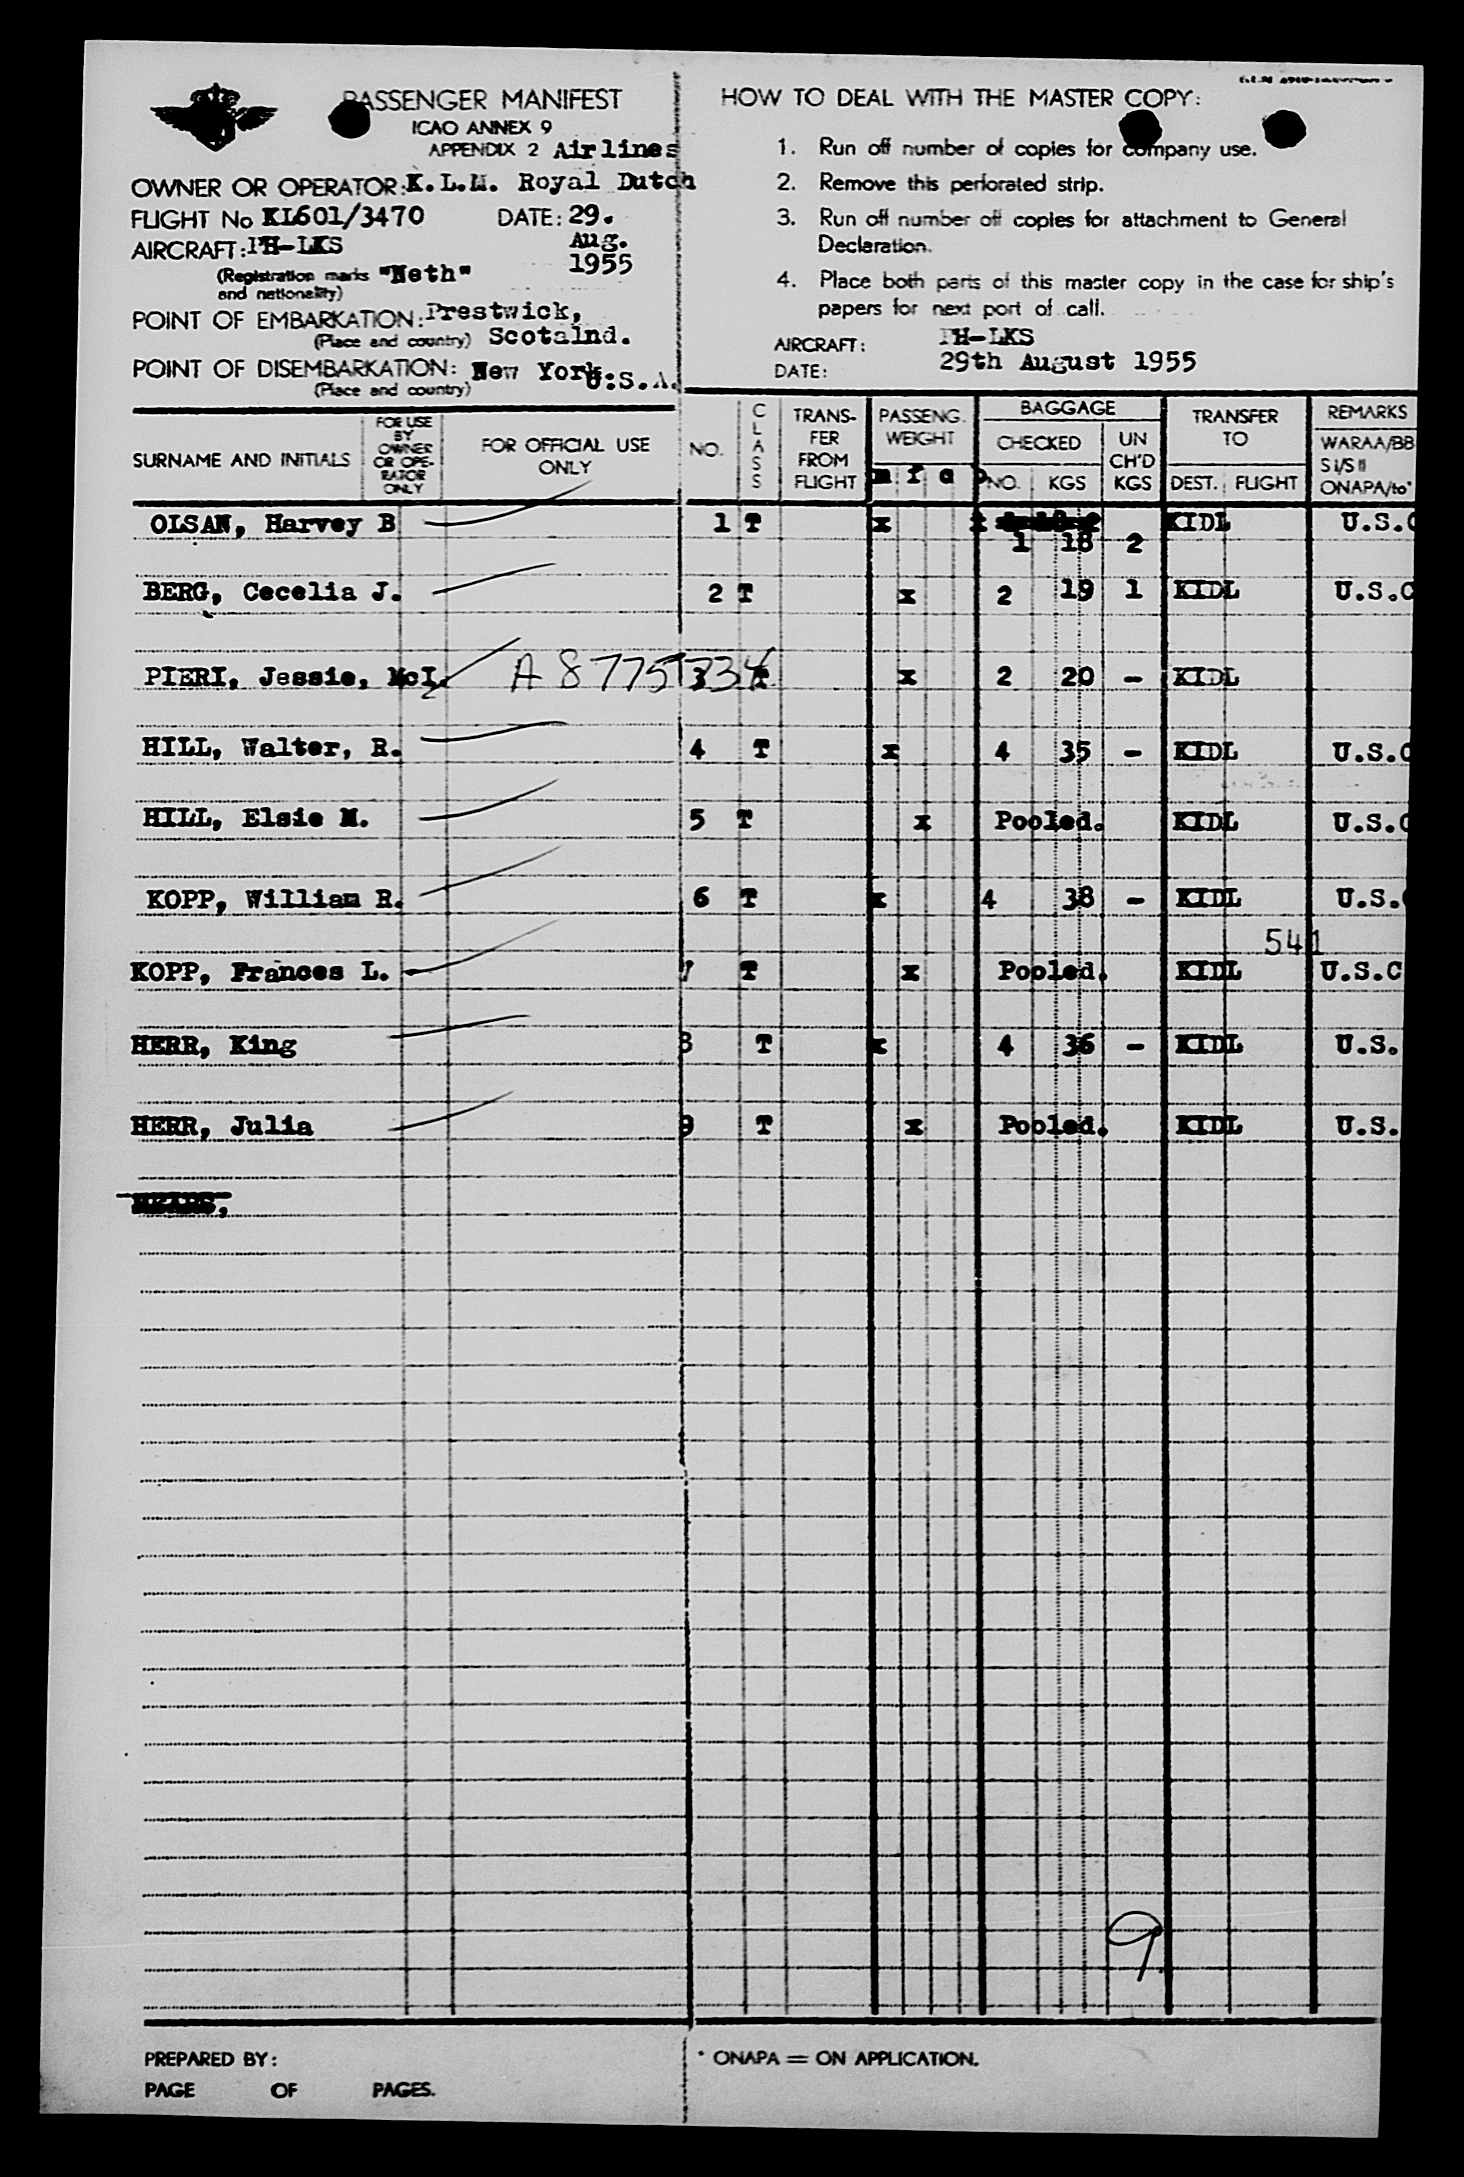 PASSENGER MANIFEST
ICAO ANNEX 9
APPENDIX 2 Airlines
OWNER OR OPERATOR: K.L.M. Royal Dutch
FLIGHT No KL601/3470 DATE: 29.
Aug.
1955
AIRCRAFT: PH-LKS
(Registration marks "Neth"
and nationality)
POINT OF EMBARKATION: Prestwick,
(Place and country) Scotalnd.
POINT OF DISEMBARKATION: New York
(Place and country) U.S.A.
HOW TO DEAL WITH THE MASTER COPY:
1. Run off number of copies for company use.
2. Remove this perforated strip.
3. Run off number off copies for attachment to General
Declaration.
4. Place both parts of this master copy in the case for ship's
papers for next port of call.
AIRCRAFT: PH-LKS
DATE: 29th August 1955
SURNAME AND INITIALS
FOR USE
BY
OWNER
OR OPE-
RATOR
ONLY
FOR OFFICIAL USE
ONLY
NO.
CLASS
TRANS-
FER
FROM
FLIGHT
PASSENG.
WEIGHT
m f a
BAGGAGE
CHECKED
NO. KGS
UN
CH'D
KGS
TRANSFER
TO
DEST. FLIGHT
REMARKS
WARAA/BB
SI/SII
ONAPA/to*
OLSAN, Harvey B 1 T x KIDL U.S.C
1 18 2
BERG, Cecelia J. 2 T x 2 19 1 KIDL U.S.C
PIERI, Jessie, McI. A8775734 3 T x 2 20 - KIDL
HILL, Walter, R. 4 T x 4 35 - KIDL U.S.C
HILL, Elsie M. 5 T x Pooled. KIDL U.S.C
KOPP, William R. 6 T x 4 38 - KIDL U.S.C
541
KOPP, Frances L. 7 T x Pooled. KIDL U.S.C
HERR, King 8 T x 4 36 - KIDL U.S.
HERR, Julia 9 T x Pooled. KIDL U.S.
9.
PREPARED BY:
PAGE OF PAGES.
* ONAPA = ON APPLICATION.